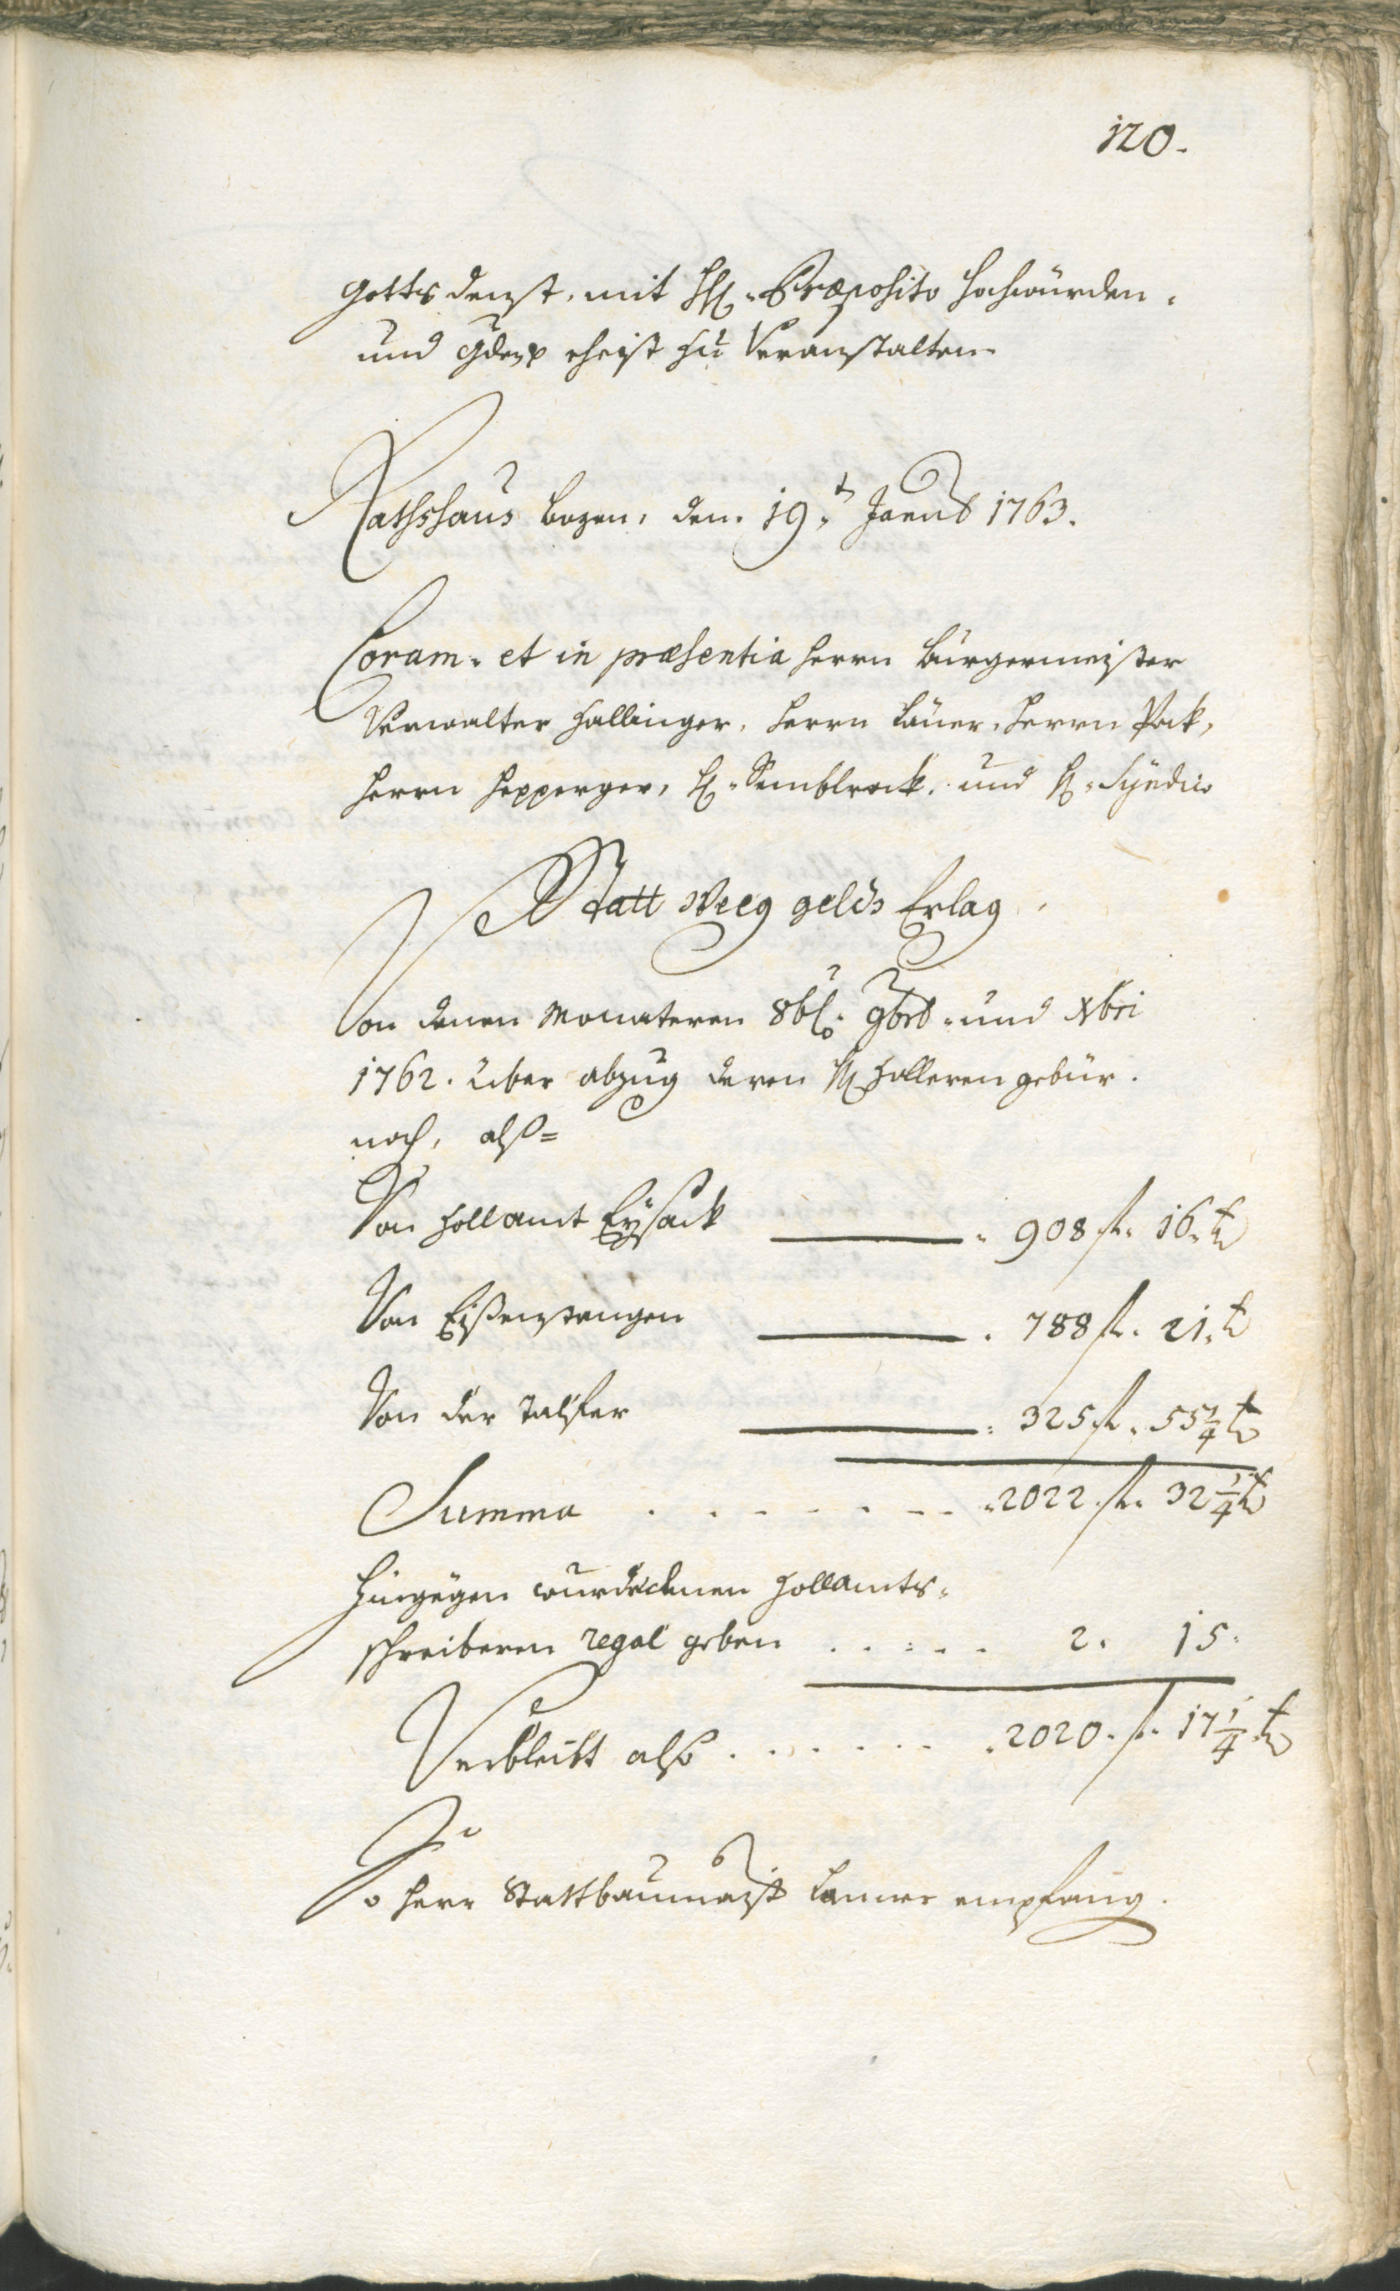 120.
Gotts denst, mit HH. Præposito Hochwürden,
und Gden ehist zu Veranstalten
Rathshaus Bozen, den 19.t Jenner 1763.
Coram et in præsentia Herrn Burgermeister
Verwalter Hallinger, Herrn Lauer, Herrn Pock,
Herrn Hepperger, H. Semblrock, und H. Syndico
Statt Weeg gelds Erlag
Von denen Monateren 8br. 9bris und Xbri
1762. über abzug deren H. Zolleren gebür.
noch, alß=
Von Zollamt Eysack 908 fl. 16. x
Von Eisenstangen 788 fl. 21. x
Von der Talfer 325 fl. 55 1/4 x
Summa 2022. fl. 32 1/4 x
Hingegen wurde denen Zollamts-
schreiberen regal geben 2. 15.
Verbleibt also 2020. fl. 17 1/4 x
So Herr Stattbaumeist empfang.